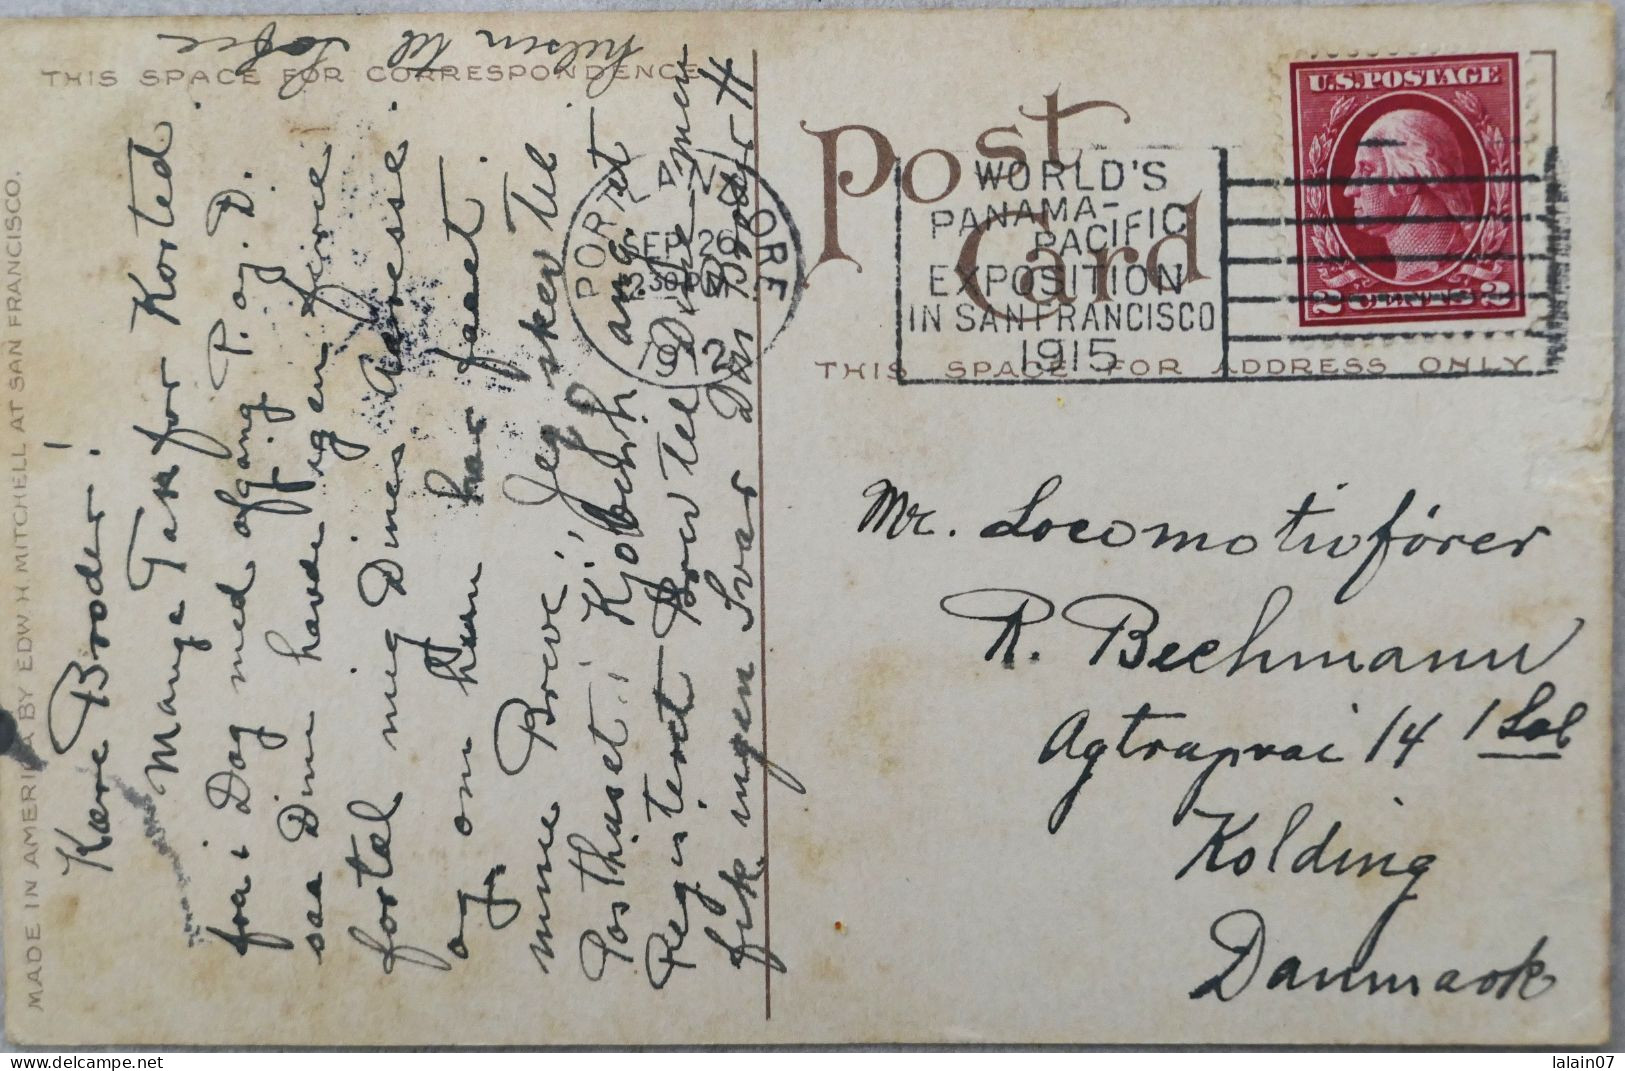 THIS SPACE FOR CORRESPONDENCE
MADE IN AMERICA BY EDW. H. MITCHELL AT SAN FRANCISCO.
Kære Broder!
Mange Tak for Kortet
fra i Dag med afgang P. og. D.
saa Dine havde ingen
fortæl mig Dines Adresse.
og om han har faaet
mine Breve," Jeg sker til
Posthuset i Kjøbenh ang et
Registeret Brev til men
fik ingen Svar Din Broder H
hilsen til Sofie
PORTLAND ORE
SEP 26
2 30 PM
1912
Post
Card
WORLD'S
PANAMA-
PACIFIC
EXPOSITION
IN SAN FRANCISCO
1915
U.S. POSTAGE
2 CENTS 2
THIS SPACE FOR ADDRESS ONLY
Mr. Locomotivfører
R. Bechmann
Agtrupvai 14 1 Sal
Kolding
Danmark
lalain07